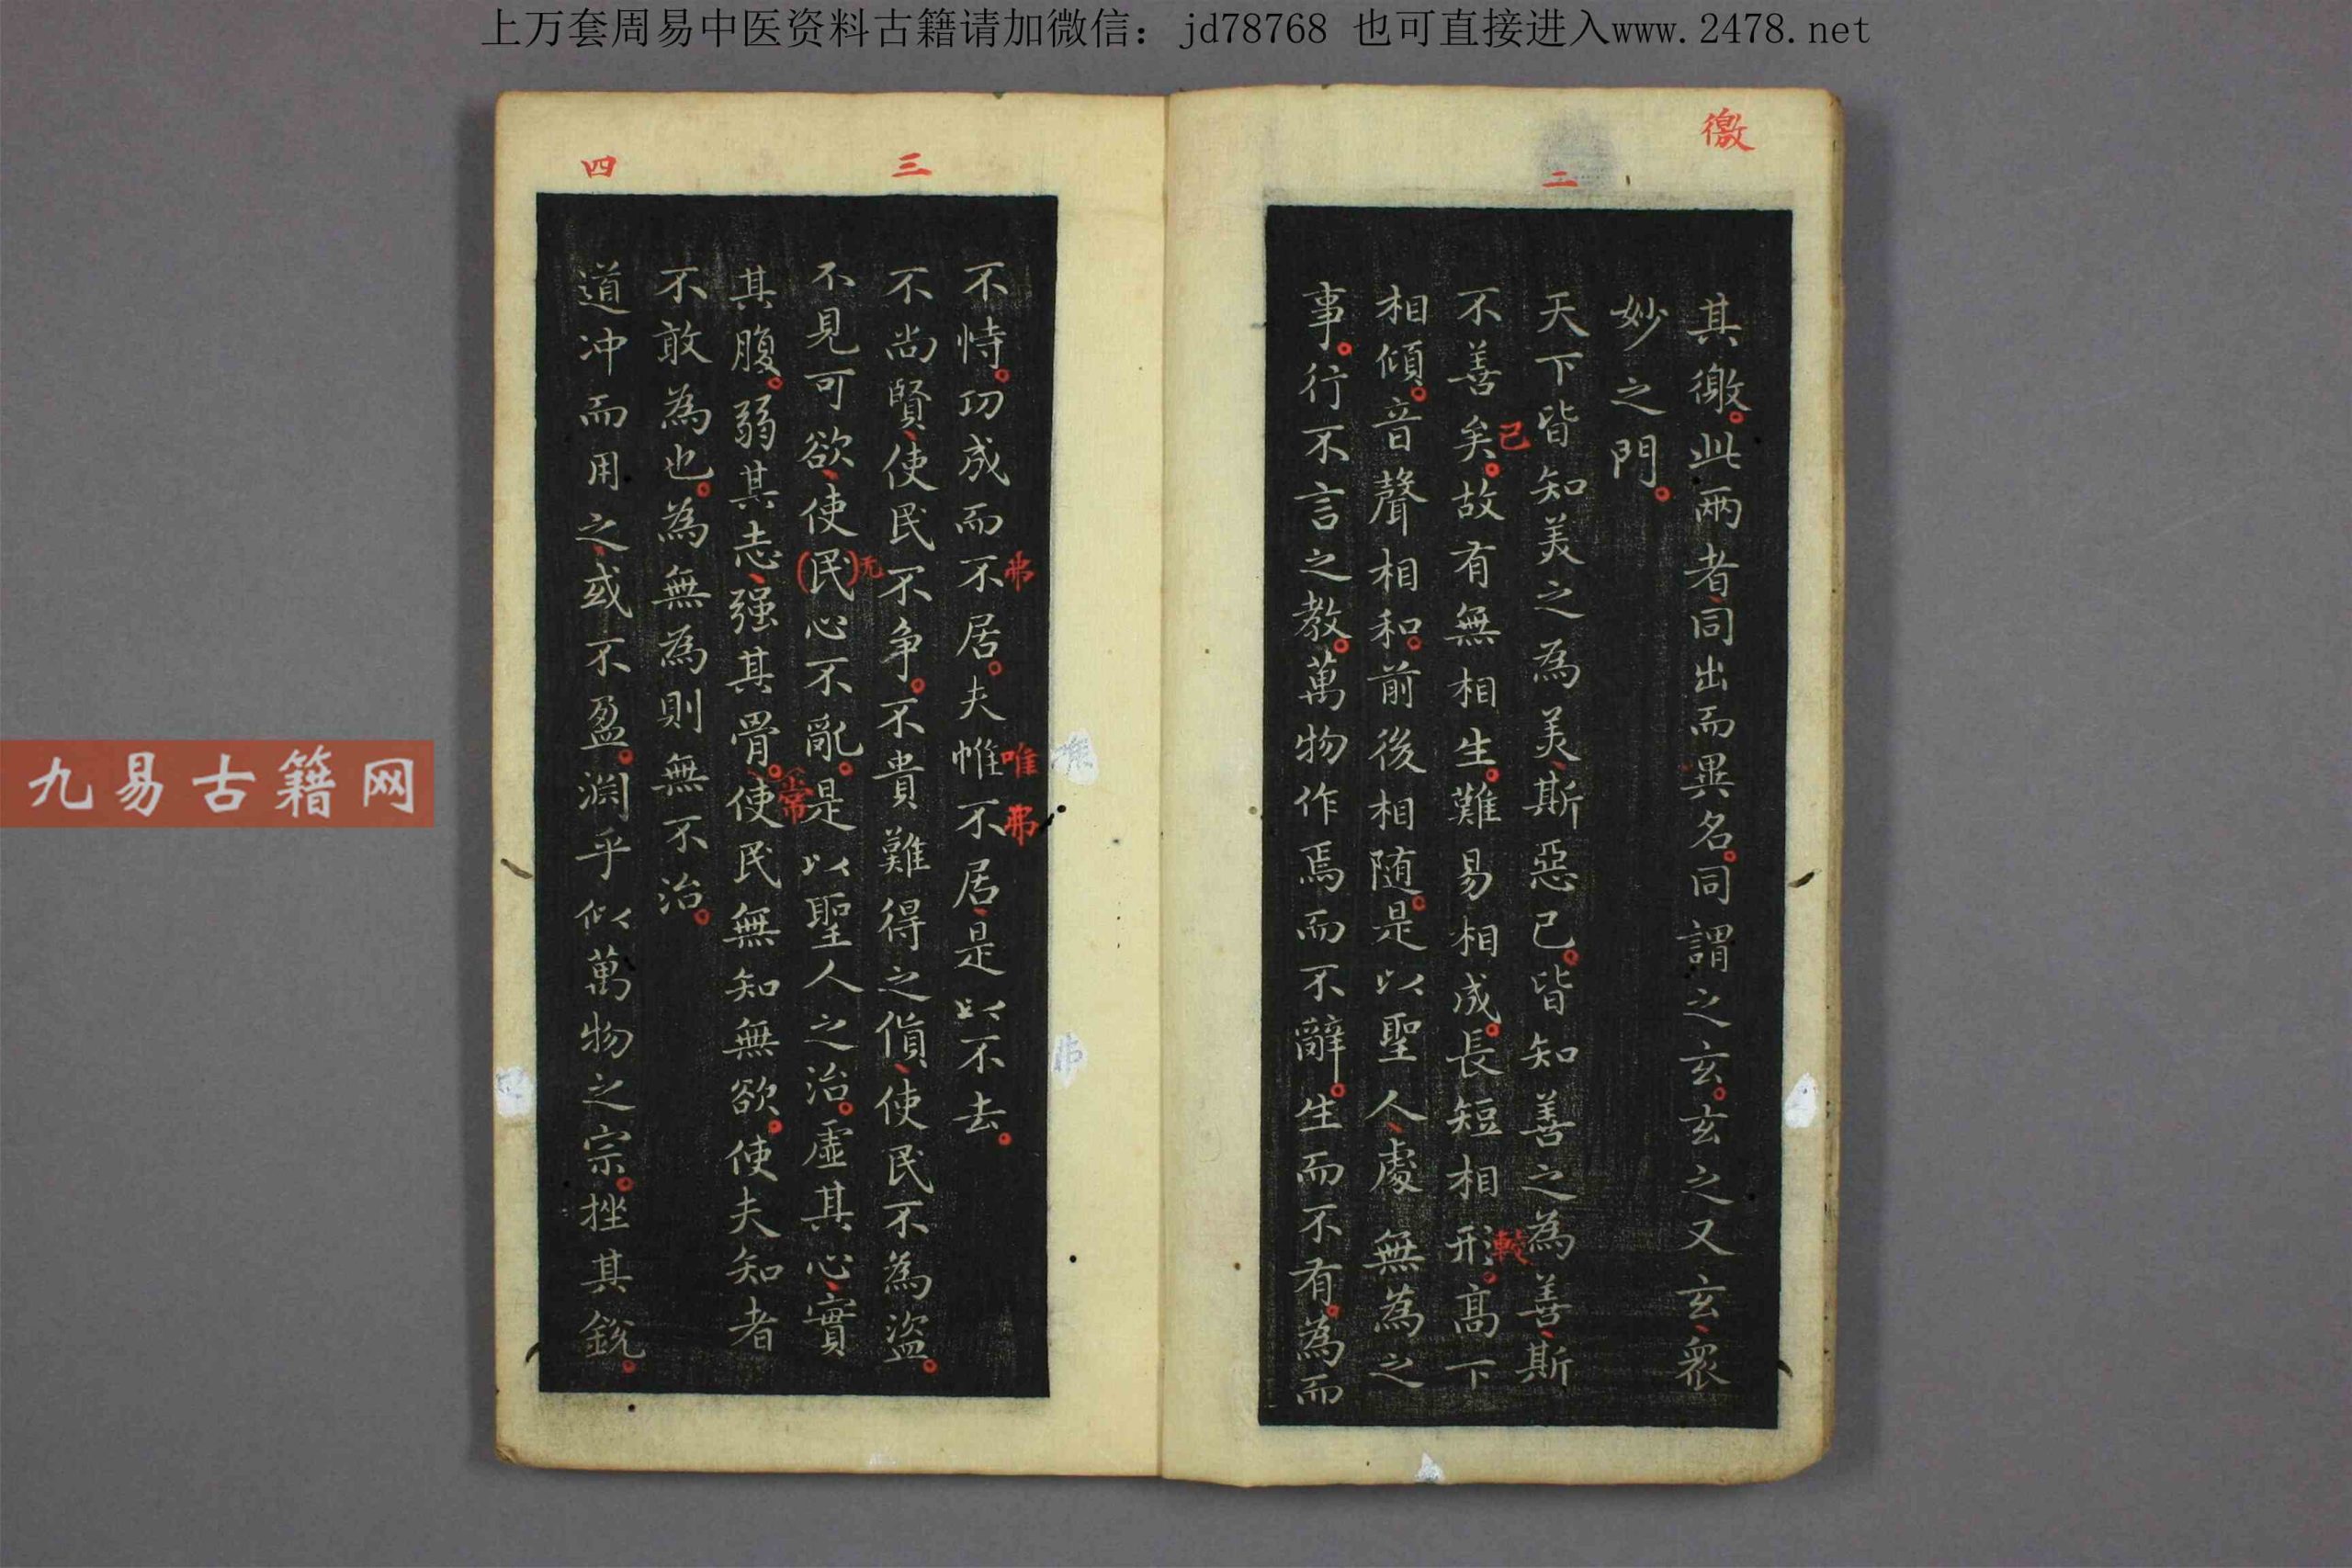 上万套周易中医资料古籍请加微信：jd78768 也可直接进入www.2478.net
徼
二
其徼。此兩者、同出而異名。同謂之玄。玄之又玄、衆
妙之門。
天下皆知美之為美、斯惡已。皆知善之為善、斯
已
不善矣。故有無相生。難易相成。長短相形。高下
較
相傾。音聲相和。前後相随。是以聖人、處無為之
事。行不言之教。萬物作焉而不辭。生而不有。為而
三
四
不恃。功成而不居。夫惟不居、是以不去。
弗
唯
弗
不尚賢、使民不争。不貴難得之價、使民不為盗。
不見可欲、使(民)心不亂。是以聖人之治。虛其心、實
无
其腹。弱其志、强其骨。使民無知無欲。使夫知者
常
不敢為也。為無為則無不治。
道冲而用之、或不盈。淵乎似萬物之宗。挫其銳。
九易古籍网